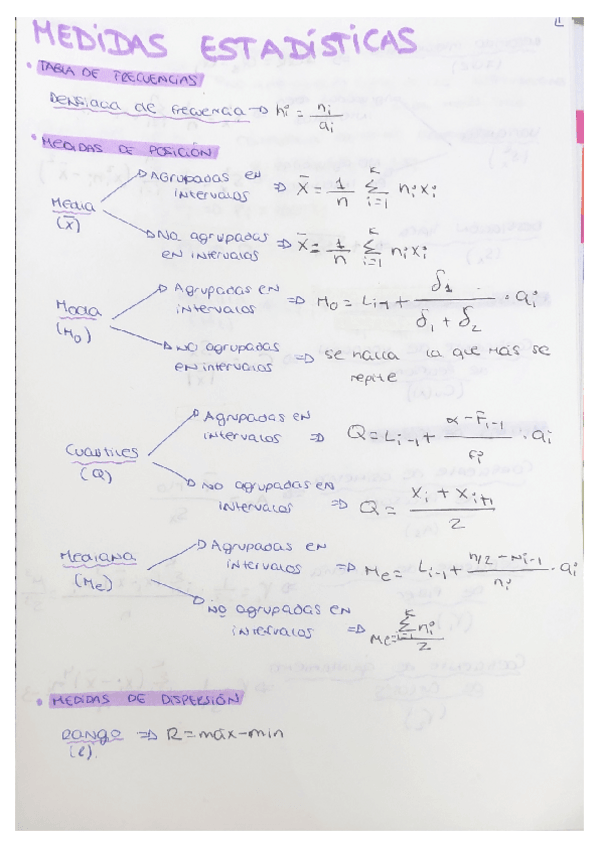 1
MEDIDAS ESTADÍSTICAS
• TABLA DE FRECUENCIAS
DENSIDAD de frecuencia ⇒ hi = ni / ai
• MEDIDAS DE POSICIÓN
Media (x̄)
→ Agrupadas en intervalos ⇒ X̄ = 1/n Σ_{i=1}^{k} ni xi
→ No agrupadas en intervalos ⇒ X̄ = 1/n Σ_{i=1}^{k} ni xi
Moda (Mo)
→ Agrupadas en intervalos ⇒ Mo = Li-1 + δ1 / (δ1 + δ2) · ai
→ No agrupadas en intervalos ⇒ se halla la que más se
repite
Cuantiles (Q)
→ Agrupadas en intervalos ⇒ Q = Li-1 + (α - Fi-1) / fi · ai
→ No agrupadas en intervalos ⇒ Q = (Xi + Xi+1) / 2
Mediana (Me)
→ Agrupadas en intervalos ⇒ Me = Li-1 + (n/2 - Ni-1) / ni · ai
→ No agrupadas en intervalos ⇒ Me = Σ_{i=1}^{k} ni / 2
• MEDIDAS DE DISPERSIÓN
Rango ⇒ R = máx - min
(R)